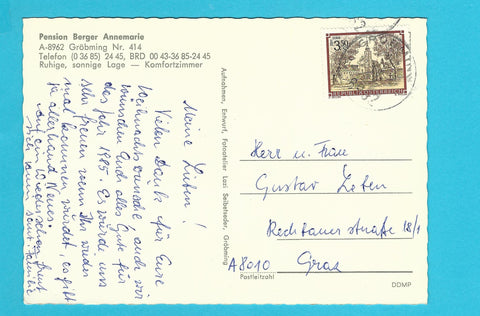 Pension Berger Annemarie
A-8962 Gröbming Nr. 414
Telefon (0 36 85) 24 45, BRD 00 43-36 85-24 45
Ruhige, sonnige Lage — Komfortzimmer
Meine Lieben!
Vielen Dank für Eure
Weihnachtswünsche auch wir
wünschen Euch alles Gute für
das Jahr 1985. Es würde uns
sehr freuen wenn Ihr wieder
mal kommen würdet, es gibt
ja allerhand Neues.
Auf ein Wiedersehen freut
sich samt Familie
Aufnahmen, Entwurf, Fotoatelier Lazi Seibetseder, Gröbming
3.50
REPUBLIK ÖSTERREICH
Herr u. Frau
Gustav
18/1
A8010 Graz
Postleitzahl
DDMP